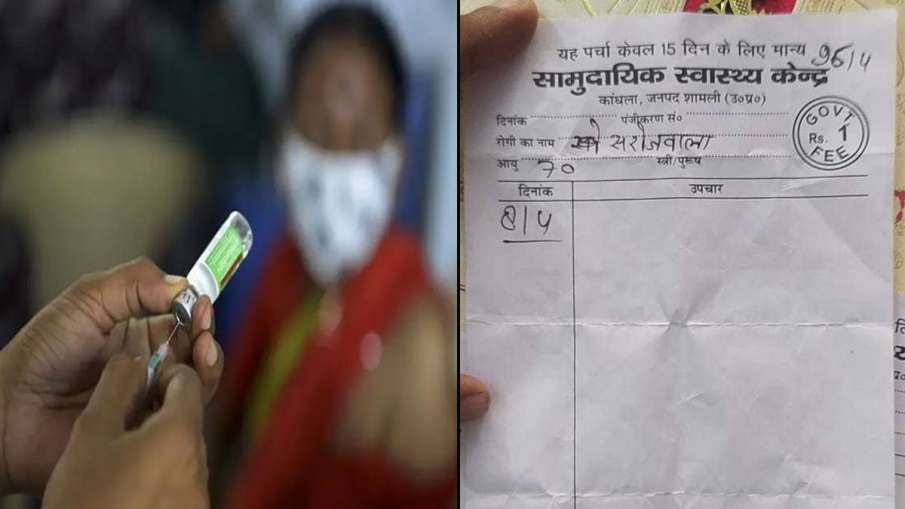 यह पर्चा केवल 15 दिन के लिए मान्य
सामुदायिक स्वास्थ्य केन्द्र
कांधला, जनपद शामली (उ०प्र०)
दिनांक पंजीकरण सं०
रोगी का नाम सरोजवाला
आयु 70 स्त्री/पुरूष
GOVT. Rs. 1 FEE
दिनांक उपचार
8/4